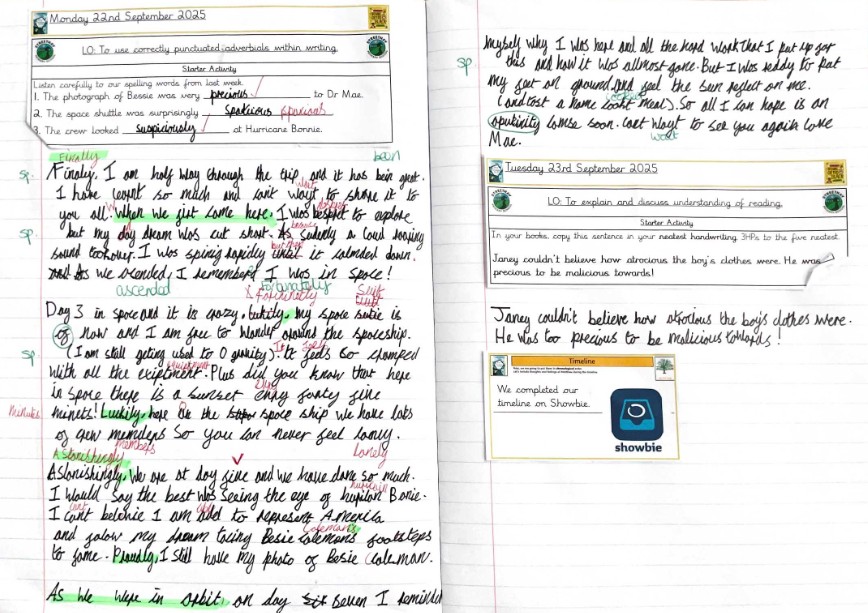 Monday 22nd September 2025
LO: To use correctly punctuated adverbials within writing.
Starter Activity
Listen carefully to our spelling words from last week.
1. The photograph of Bessie was very precious to Dr Mae.
2. The space shuttle was surprisingly spakious spacious
3. The crew looked suspiciously at Hurricane Bonnie.
Finally been
sp. Finaly, I am half way through the trip and it has bein great.
wait
I have learnt so much and cant wayt to share it to
you all. When we girt came here, I was besport to explore
but my day dream was cut short. As sudenly a loud roaring
sp.
sound tookover. I was spinig rapidly until it calmded down.
As we acended, I rememberd I was in space!
ascended fortunately
Day 3 in space and it is crazy. Lukily, my space sutie is
of now and I am free to wander around the spaceship.
sp. (I am still geting used to 0 gravity). It feels so cramped
equipment
with all the exiptment. Plus did you know that here
in space there is a sunset eney forty five
minutes minets! Luckily, here on the space ship we have lots
of grew memders so you can never feel loney.
members lonely
Astonishingly
Astonishingly, we are at day five and we have done so much.
hurricain
I would say the best was seeing the eye of hurilan Bonie.
can't
I cant beleive I am abld to represent America
Coleman's
and folow my dream tacing Besie colemans footsteps
to fame. Proudly, I still have my photo of Besie Coleman.
As we were in orbit, on day seven I remind
myself why I was here and all the hard work that I put up for
sp this and how it was allmost gone. But I was ready to put
my feet on ground and feel the sun reflect on me.
(and tast a home cookt meal). So all I can hope is an
opukinity comse soon. Cant wayt to see you again love
wait
Mae.
Tuesday 23rd September 2025
LO: To explain and discuss understanding of reading.
Starter Activity
In your books, copy this sentence in your neatest handwriting. 3HPs to the five neatest.
Janey couldn't believe how atrocious the boy's clothes were. He was
precious to be malicious towards!
Janey couldn't believe how atrocious the boy's clothes were.
He was too precious to be malicious towards!
Timeline
We completed our
timeline on Showbie.
showbie